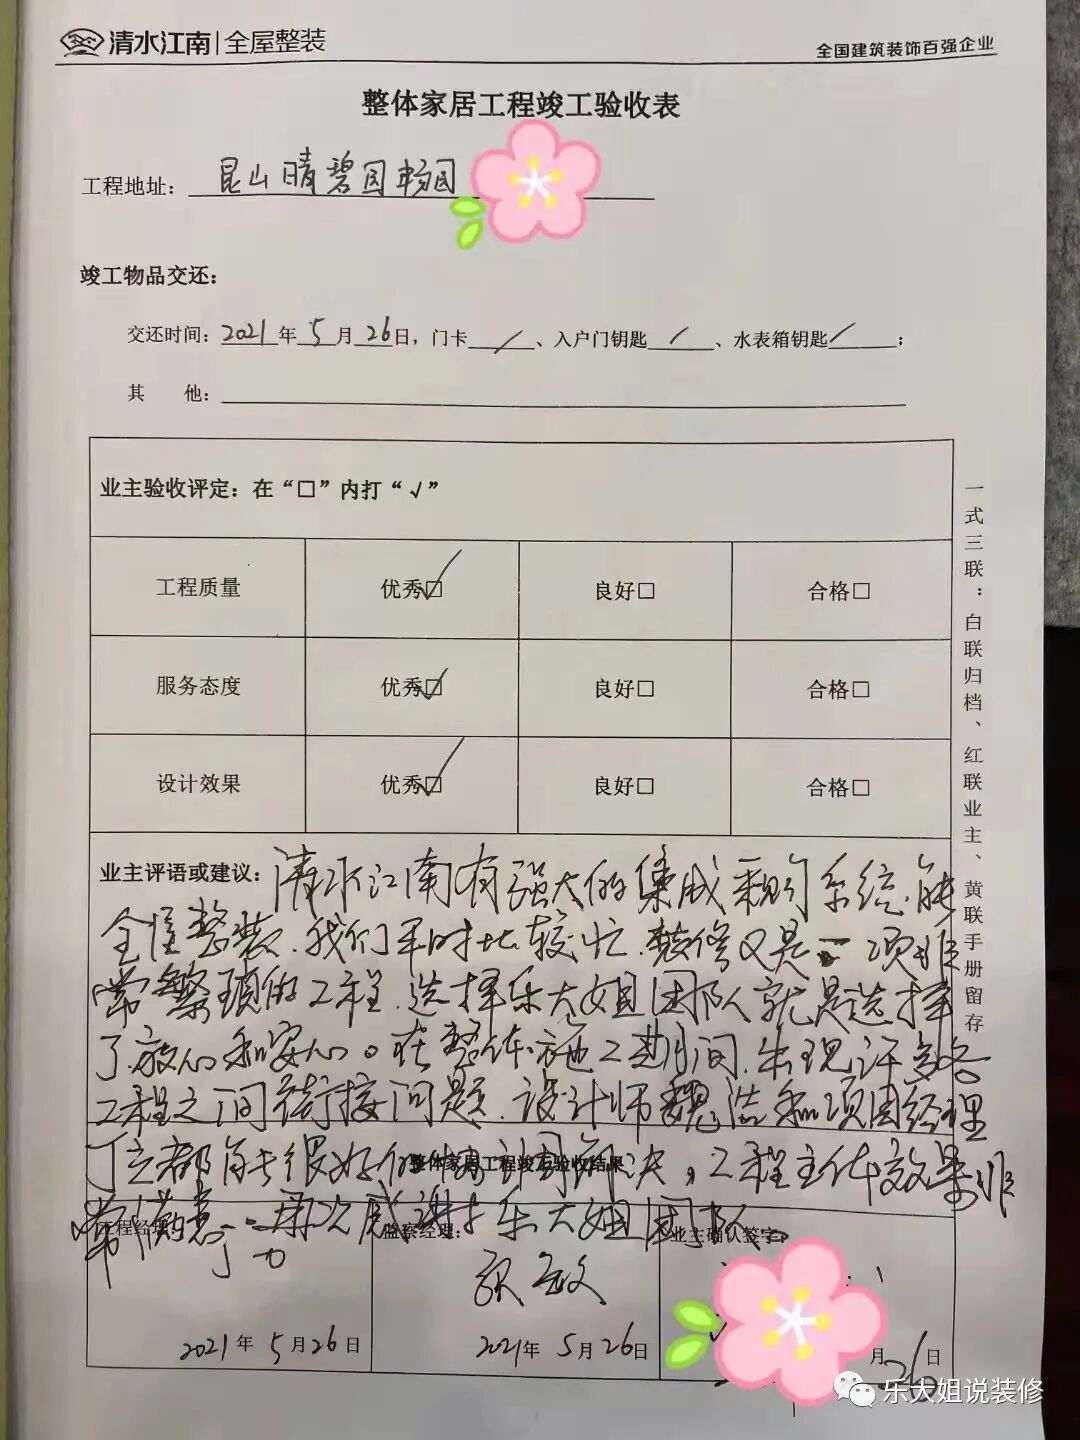 清水江南|全屋整装
全国建筑装饰百强企业
整体家居工程竣工验收表
工程地址：昆山晴碧园畅园
竣工物品交还：
交还时间：2021年5月26日，门卡/、入户门钥匙/、水表箱钥匙/；
其 他：
业主验收评定：在“□”内打“√”
工程质量 优秀☑ 良好□ 合格□
服务态度 优秀☑ 良好□ 合格□
设计效果 优秀☑ 良好□ 合格□
一式三联：白联归档、红联业主、黄联手册留存
业主评语或建议：清水江南有强大的集成采购系统.能
全屋整装.我们平时比较忙.装修又是一项非
常繁琐的工程.选择乐大姐团队就是选择
了放心和安心。在整体施工期间.出现许多各
工程之间衔接问题.设计师魏浩和项目经理
丁立都有去很好的协调解决，工程主体效果非
常满意.再次感谢乐大姐团队.
整体家居工程竣工验收结果
工程经理： 监察经理： 业主确认签字：
2021年5月26日 2021年5月26日 月26日
乐大姐说装修